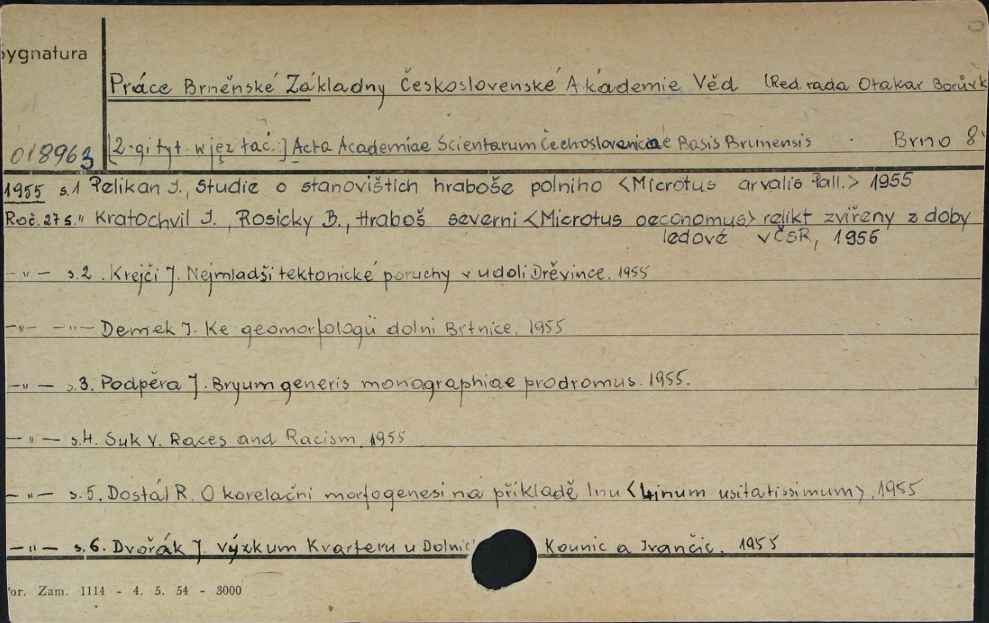 Sygnatura
Práce Brněnské Základny Československé Akademie Věd (Red. rada Otakar Borůvk
018963 [2-gi tyt. w jęz. łac.] Acta Academiae Scientarum Čechoslovenicae Basis Brunensis . Brno 8°
1955 s.1 Pelikan J., Studie o stanovištich hraboše polniho <Microtus arvalis Pall.> 1955
Roč. 27 s." Kratochvil J., Rosicky B., Hraboš severni <Microtus oeconomus> relikt zviřeny z doby
ledové v ČSR, 1956
-"- s.2. Krejči J. Nejmladši tektonické poruchy v udoli Dřěvince. 1955
-"- -"- Demek J. Ke geomorfologii dolni Brtnice. 1955
-"- s.3. Podpěra J. Bryum generis monographiae prodromus. 1955.
-"- s.4. Suk V. Races and Racism, 1955
-"- s.5. Dostál R. O korelačni morfogenesi na přikladě lnu <Linum usitatissimum>, 1955
-"- s.6. Dvořák J. Výzkum Kvarteru u Dolnic Kounic a Ivančic, 1955
or. Zam. 1114 - 4. 5. 54 - 3000